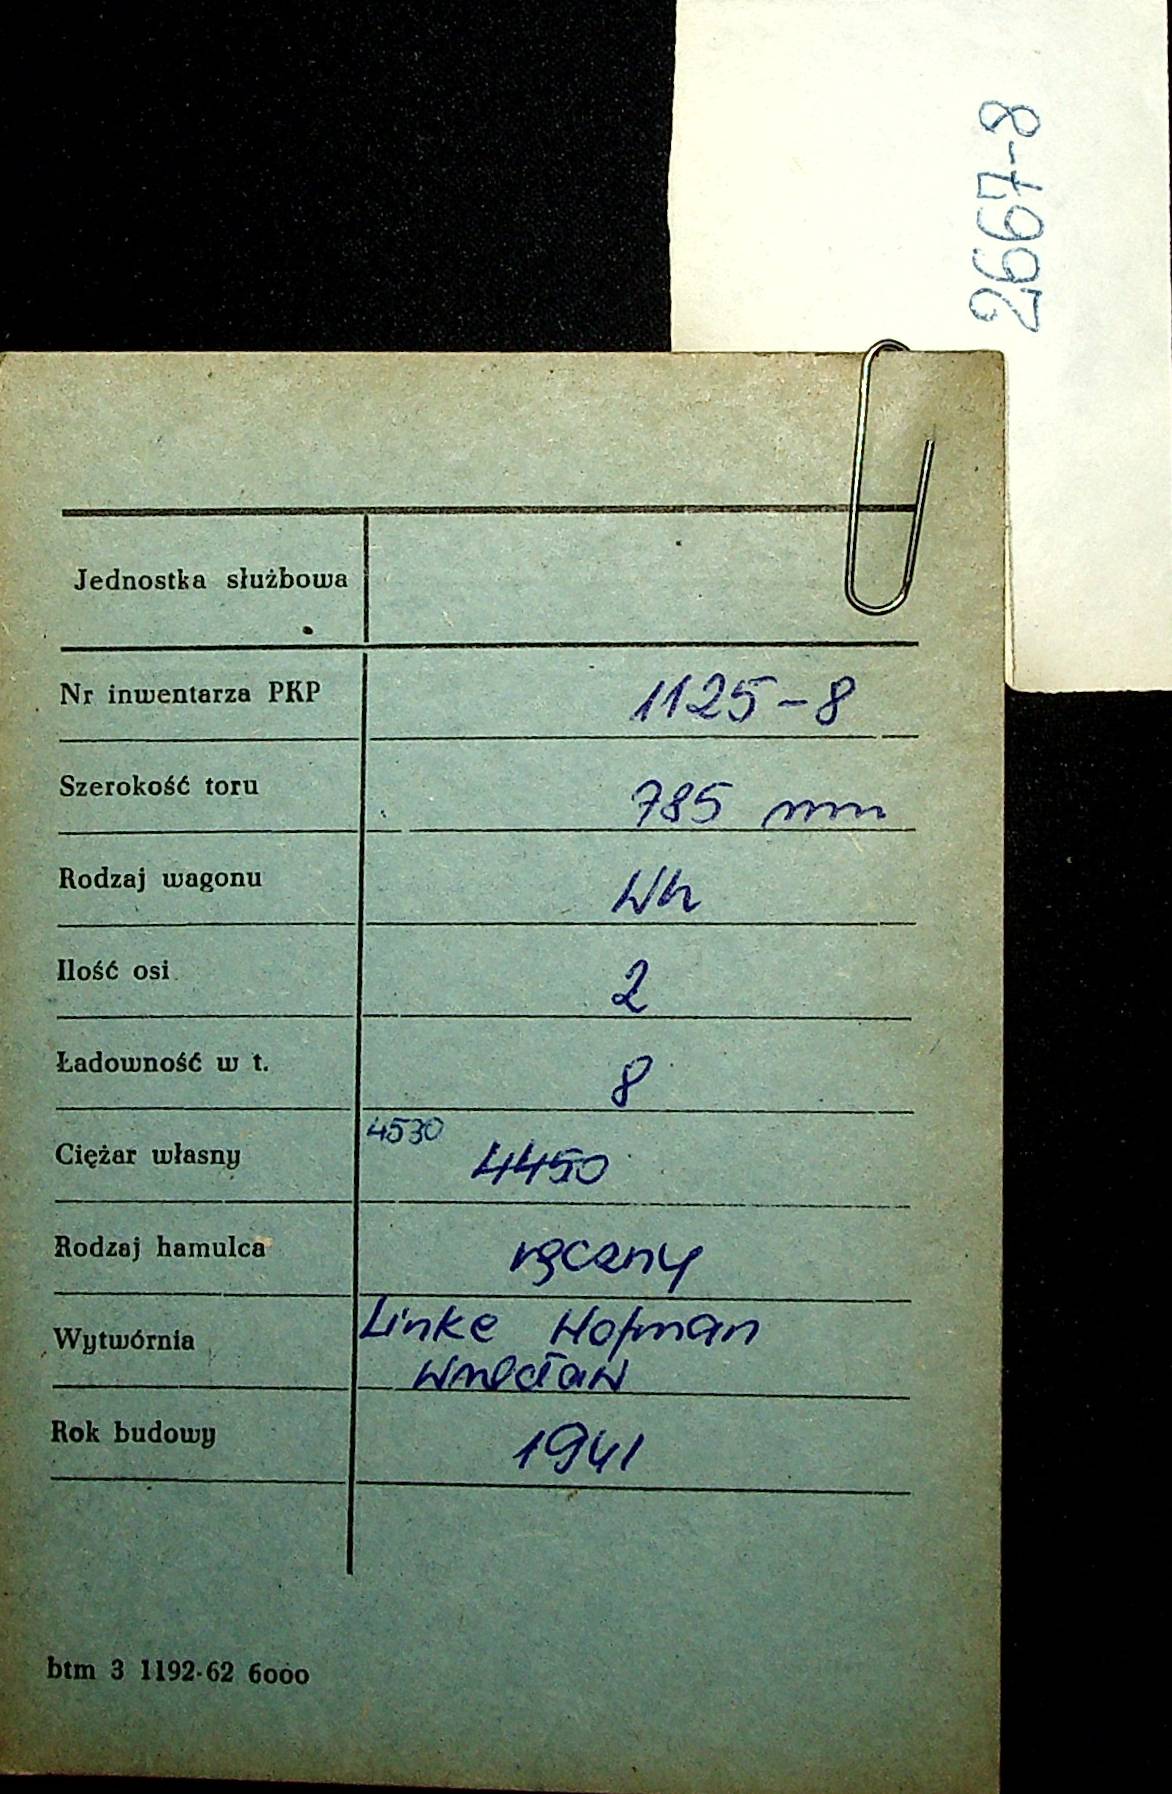 2667-8
Jednostka służbowa
Nr inwentarza PKP 1125-8
Szerokość toru 785 mm
Rodzaj wagonu Wh
Ilość osi 2
Ładowność w t. 8
4530
Ciężar własny 4450
Rodzaj hamulca ręczny
Wytwórnia Linke Hofman
Wrocław
Rok budowy 1941
btm 3 1192-62 6000